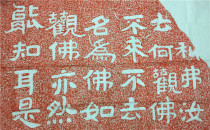 利弗汝
云何觀佛
不來不去
名為佛如
觀佛亦然
知耳是